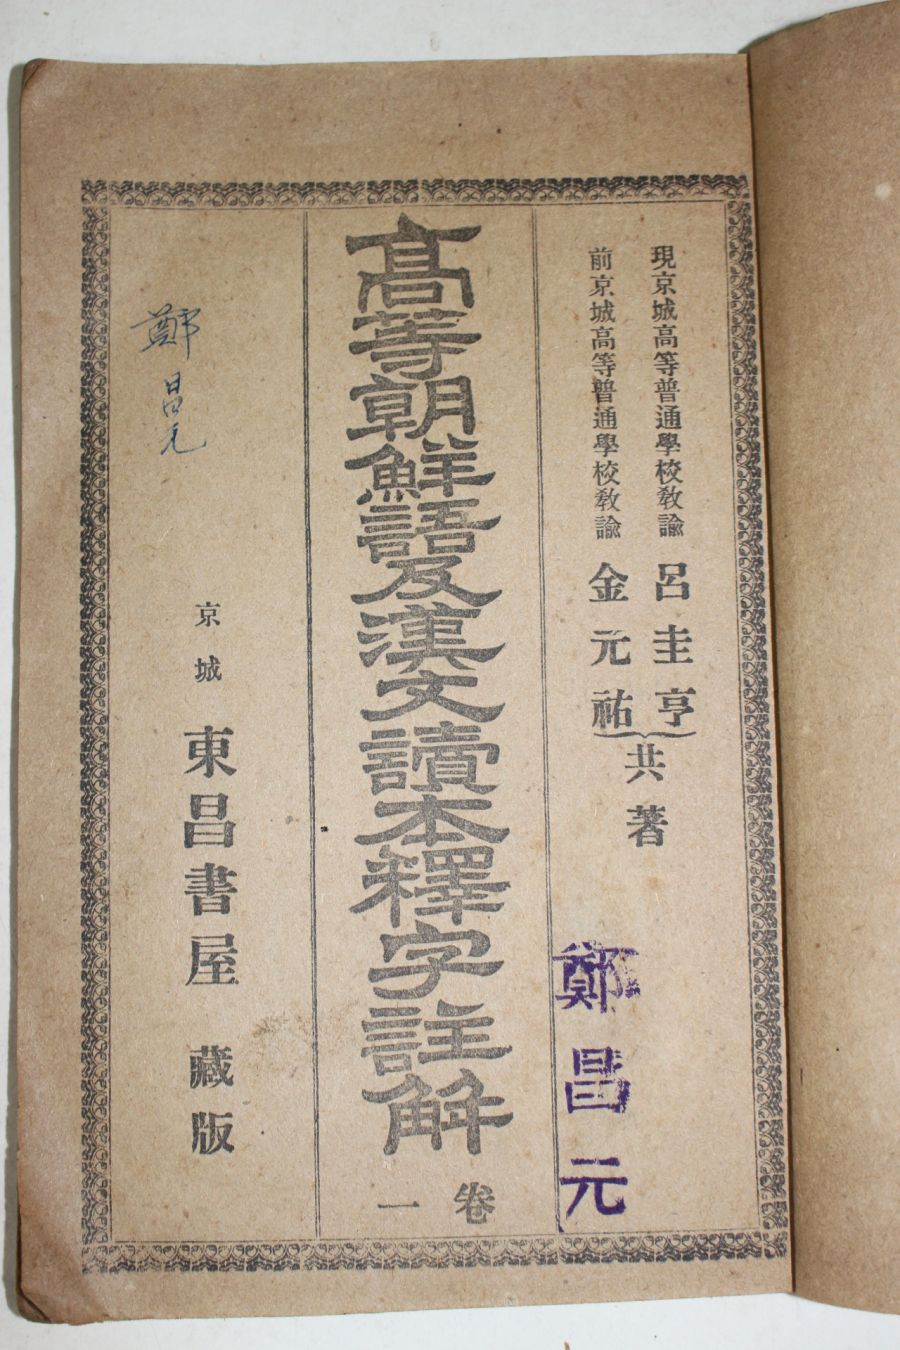 現京城高等普通學校敎諭 呂圭亨
前京城高等普通學校敎諭 金元祐
共著
鄭昌元
高等朝鮮語及漢文讀本釋字註解
卷一
鄭昌元
京城 東昌書屋 藏版